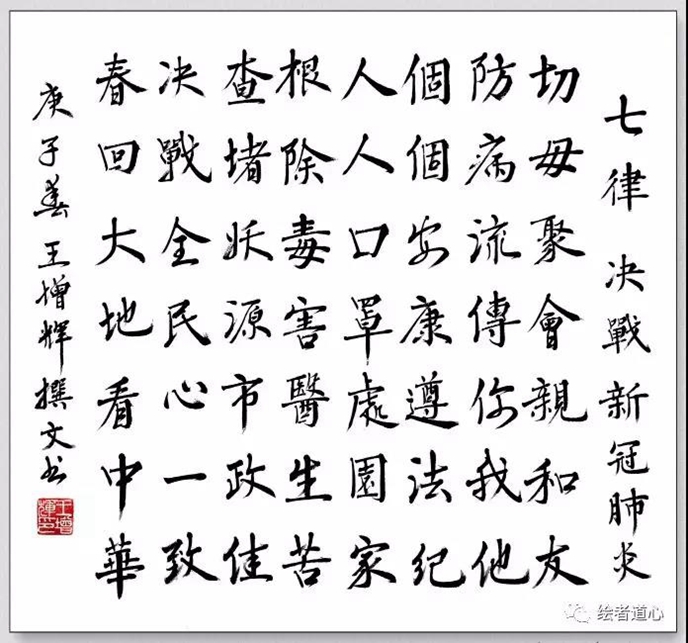 七律 决戰新冠肺炎
切毋聚會親和友
防病流傳你我他
個個安康遵法纪
人人口罩處園家
根除毒害醫生苦
查堵妖源市政佳
决戰全民心一致
春回大地看中華
庚子春 王增辉撰文书
王增輝印
绘者道心